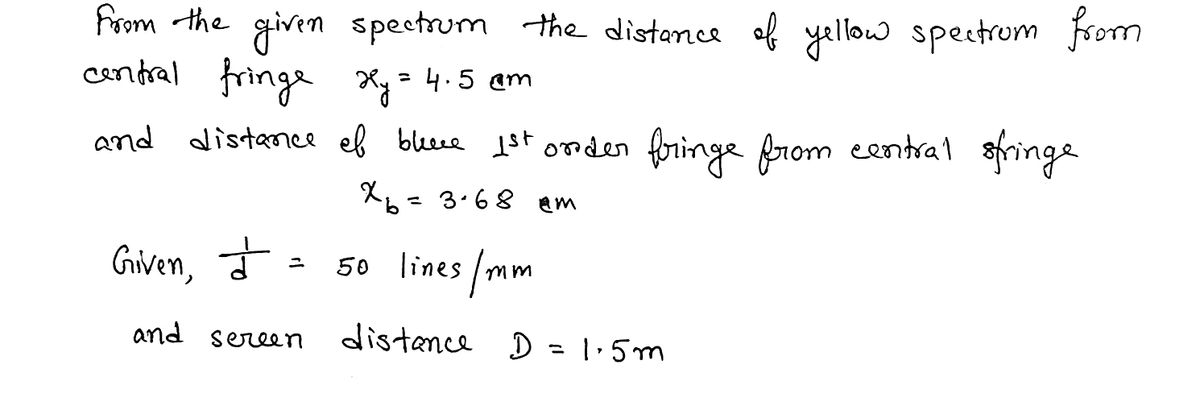 From the given spectrum the distance of yellow spectrum from
central fringe x_y = 4.5 cm
and distance of blue 1st order fringe from central fringe
x_b = 3.68 cm
Given, 1/d = 50 lines/mm
and screen distance D = 1.5m